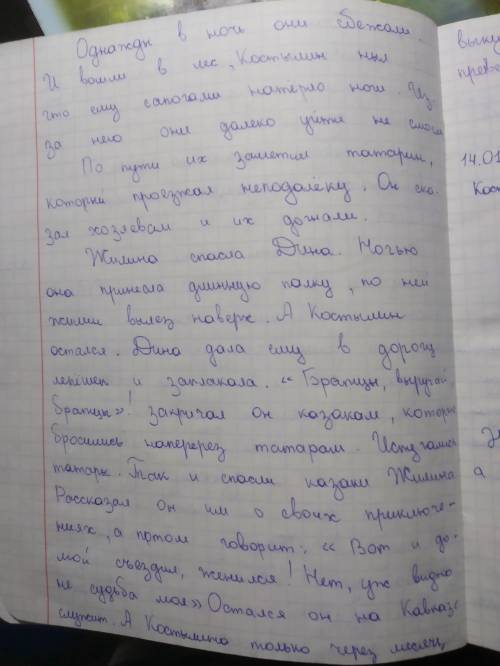 Однажды в ночь они сбежали.
И вошли в лес, Костылин ныл
что ему сапогами натерло ноги. Из-
за него они далеко уйти не смогли
По пути их заметил татарин,
который проезжал неподалёку. Он ска-
зал хозяевам и их догнали.
Жилина спасла Дина. Ночью
она принесла длинную палку, по ней
Жилин вылез наверх. А Костылин
остался. Дина дала ему в дорогу
лепешек и заплакала. "Братцы, выручай,
братцы"! закричал он казакам, которые
бросились наперерез татарам. Испугались
татары. Так и спасли казаки Жилина
Рассказал он им о своих приключе-
ниях, а потом говорит: "Вот и до-
мой съездил, женился! Нет, уж видно
не судьба моя" Остался он на Кавказе
служит. А Костылина только через месяц
выку
превё
14.01
Кост
а